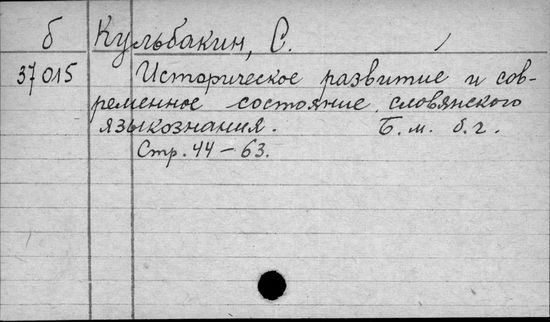 б Кульбакин, С.
37015 Историческое развитие и сов-
ременное состояние словянского
языкознания. Б.м. б.г.
Стр. 44 – 63.